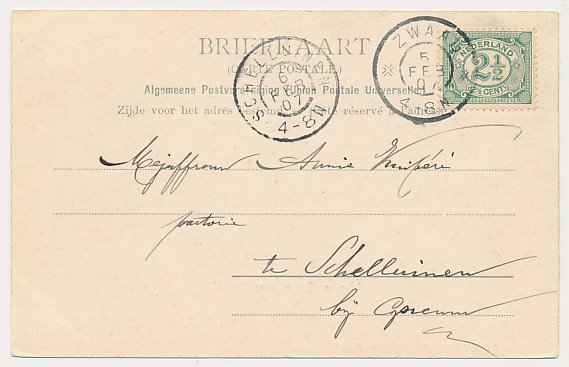 BRIEFKAART
(CARTE POSTALE)
Algemeene Postvereeniging (Union Postale Universelle)
Zijde voor het adres bestemd. Côté réservé à l'adresse
SCHELLUINEN
6 FEB 07
4-8N
ZWA
5 FEB 07
4-8N
NEDERLAND
2½
CENT
Mejuffrouw Annie
pastorie
te Schelluinen
bij Gorcum